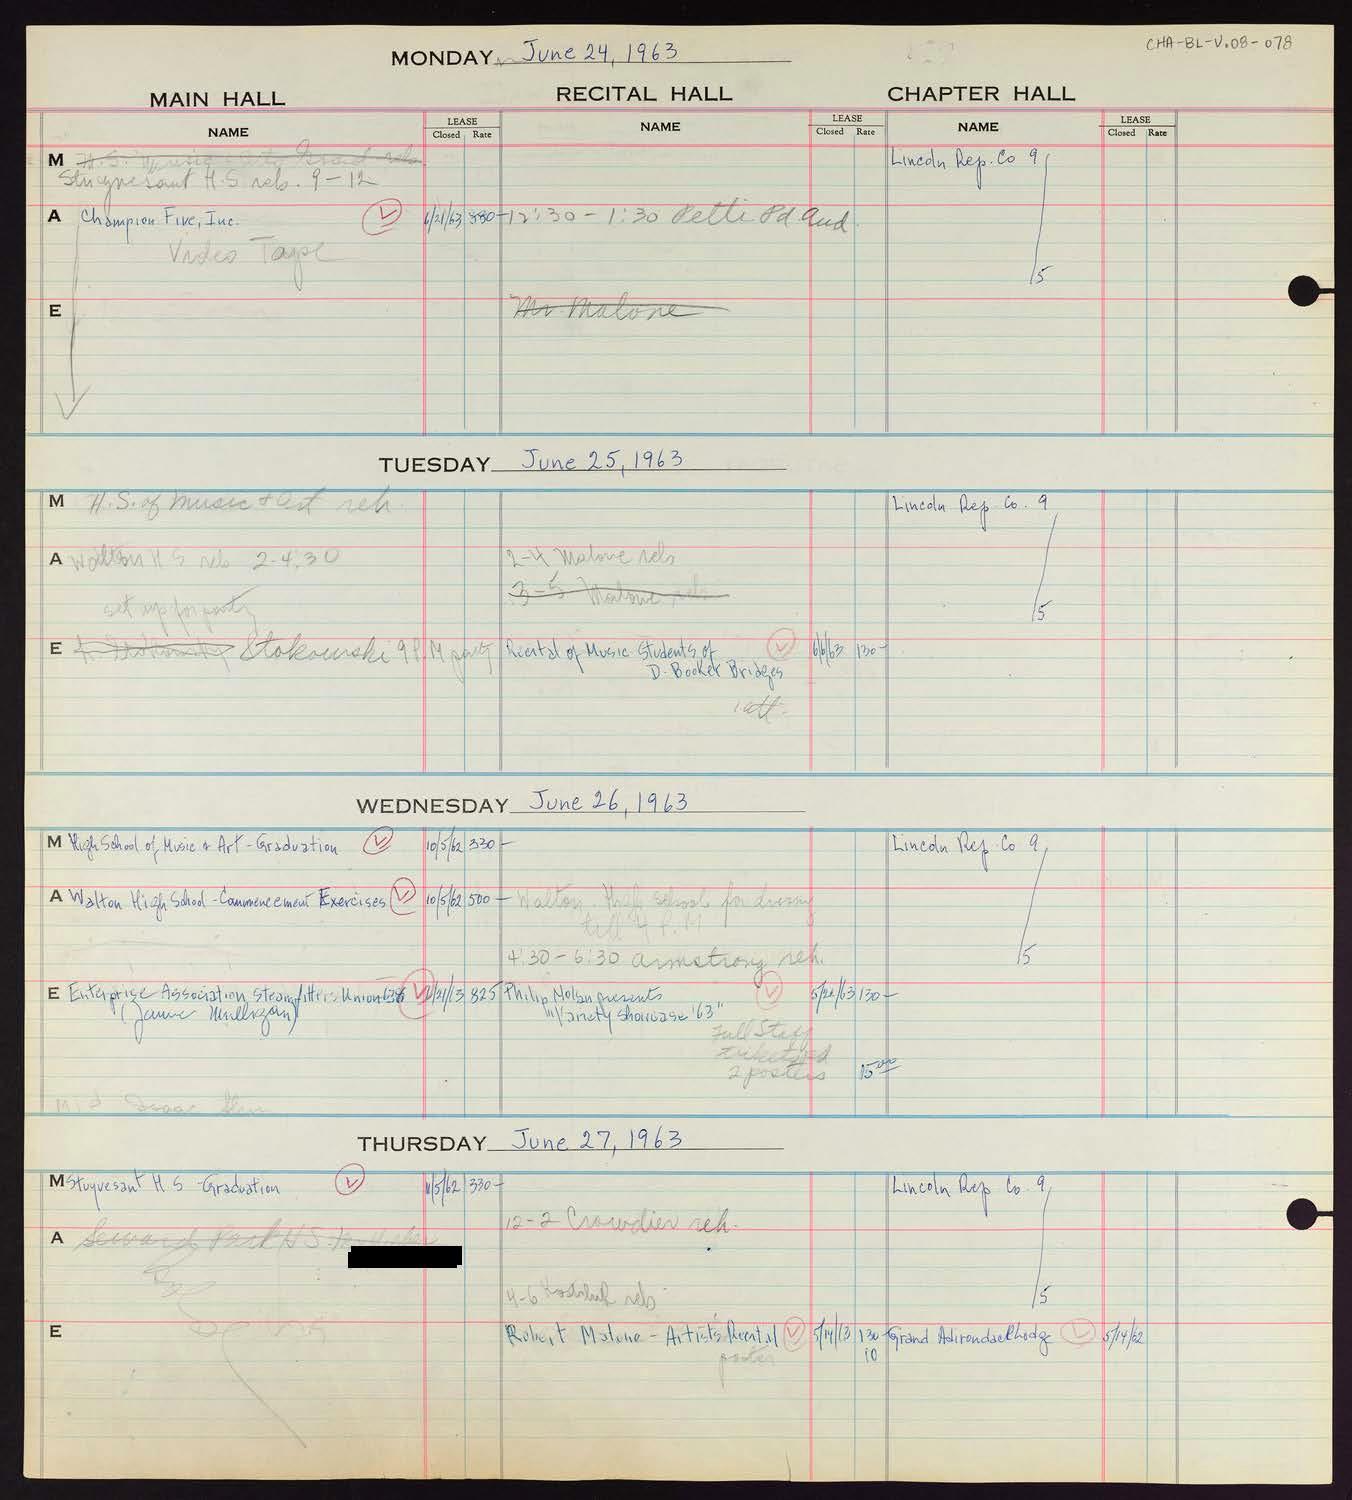 CHA-BL-V.08-078
MONDAY June 24, 1963
MAIN HALL RECITAL HALL CHAPTER HALL
NAME LEASE Closed Rate NAME LEASE Closed Rate NAME LEASE Closed Rate
M H.S. Music + Art reh Lincoln Rep. Co 9
Stuyvesant H.S reh. 9-12
A Champion Five, Inc. 6/21/63 880- 12:30 - 1:30 Petti Pd Aud.
Video Tape
5
E Mr Malone
TUESDAY June 25, 1963
M H.S. of Music + Art reh. Lincoln Rep. Co. 9
A Walton H S reh 2-4:30 2-4 Malone reh
3-5 Malone reh
set up for party 5
E Stokowski 9 P.M party Recital of Music Students of 6/6/63 130-
D. Booker Bridges
1 att.
WEDNESDAY June 26, 1963
M High School of Music & Art - Graduation 10/5/62 330- Lincoln Rep. Co 9
A Walton High School - Commencement Exercises 10/5/62 500- Walton High School for
till 4 P.M
4:30 - 6:30 Armstrong reh. 5
E Enterprise Association Steamfitters Union 638 825 Philip Nolan presents 5/22/63 130-
"Variety Showcase '63"
Full Staff
2 posters 15.00
Mid Isaac
THURSDAY June 27, 1963
M Stuyvesant H S - Graduation 11/5/62 330- Lincoln Rep Co. 9
12-2 Crowdier reh.
A Seward Park H S
4-6 reh 5
E Robert Malone - Artist's Recital 5/14/63 130- Grand Adirondack Lodge 5/14/62
poster 10